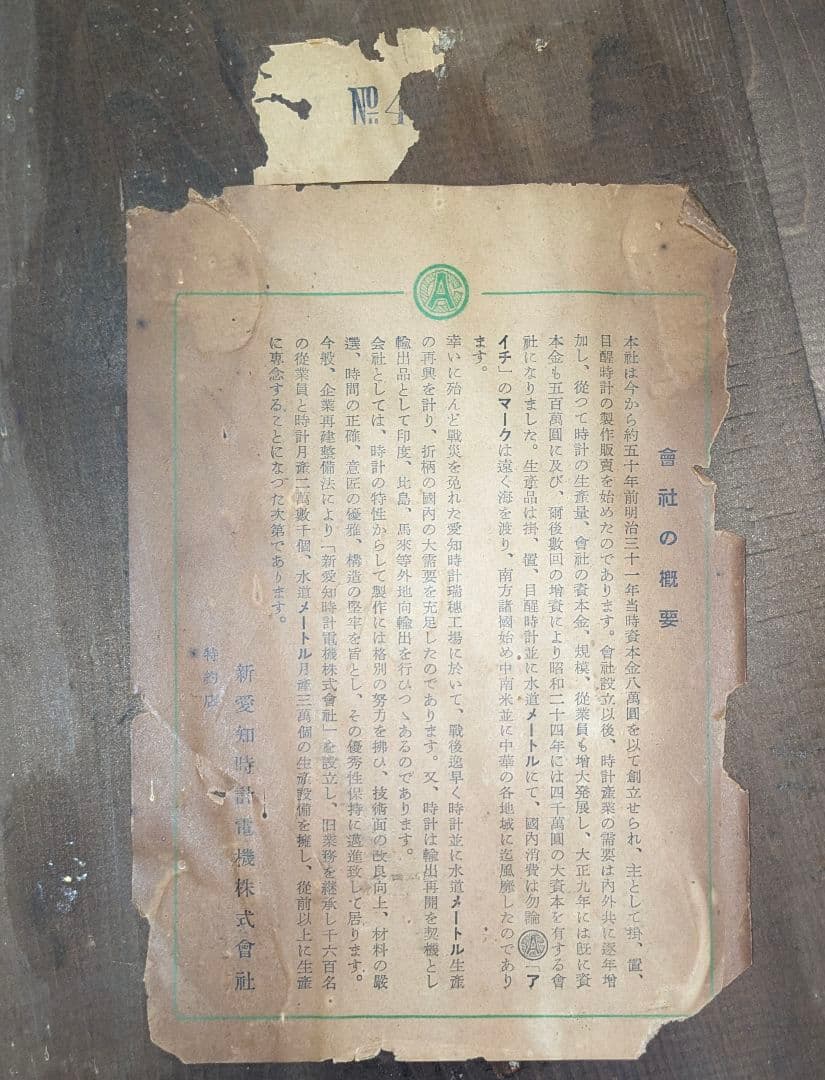 № 4
A
會社の概要
本社は今から約五十年前明治三十一年当時資本金八萬圓を以て創立せられ、主として掛、置、
目醒時計の製作販賣を始めたのであります。會社設立以後、時計產業の需要は内外共に逐年增
加し、從つて時計の生產量、會社の資本金、規模、從業員も增大発展し、大正九年には既に資
本金も五百萬圓に及び、爾後數回の增資により昭和二十四年には四千萬圓の大資本を有する會
社になりました。生產品は掛、置、目醒時計並に水道メートルにて、國內消費は勿論Ⓐ「ア
イチ」のマークは遠く海を渡り、南方諸國始め中南米並に中華の各地域に迄風靡したのであり
ます。
幸いに殆んど戰災を免れた愛知時計瑞穗工場に於いて、戰後逸早く時計並に水道メートル生產
の再興を計り、折柄の國內の大需要を充足したのであります。又、時計は輸出再開を契機とし
輸出品として印度、比島、馬來等外地向輸出を行ひつゝあるのであります。
会社としては、時計の特性からして製作には格別の努力を拂ひ、技術面の改良向上、材料の嚴
選、時間の正確、意匠の優雅、構造の堅牢を旨とし、その優秀性保持に邁進致して居ります。
今般、企業再建整備法により「新愛知時計電機株式會社」を設立し、旧業務を継承し千六百名
の從業員と時計月產二萬數千個、水道メートル月產三萬個の生產設備を擁し、從前以上に生產
に専念することになつた次第であります。
新愛知時計電機株式會社
特約店